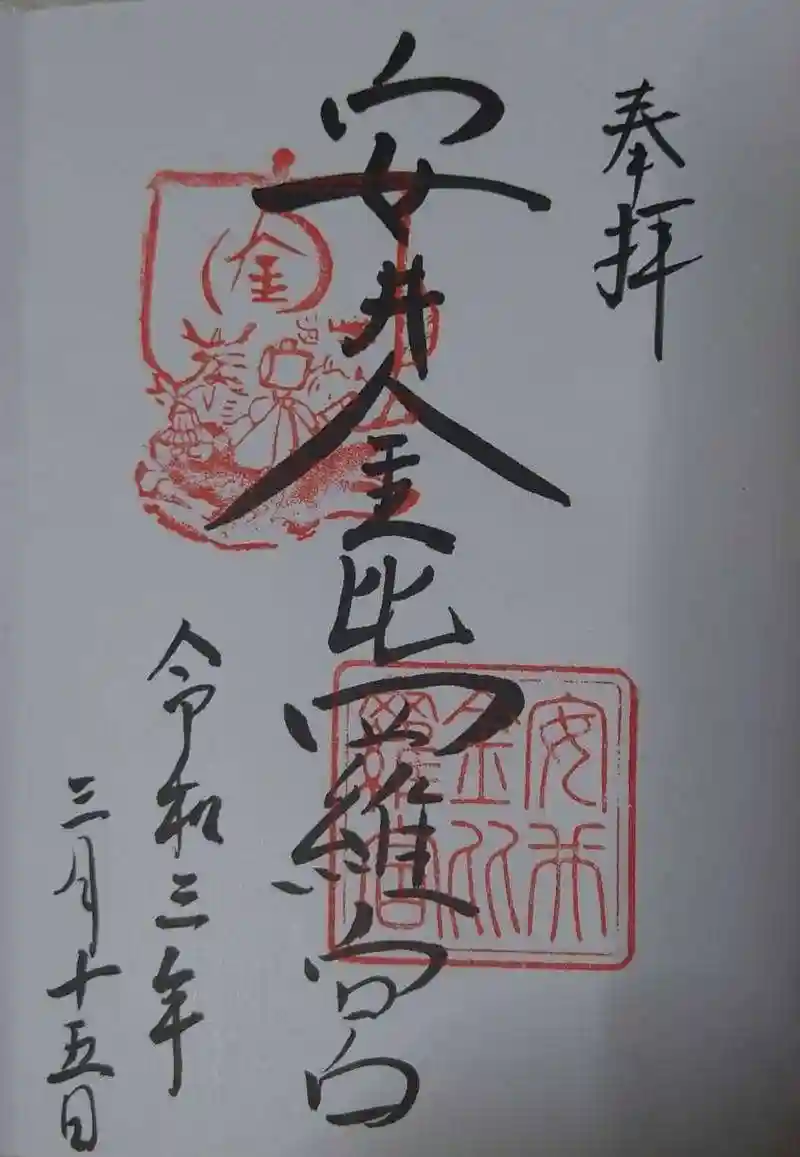 奉拝
安井金比羅宮
安井
金比
羅宮
金
令和三年
三月十五日